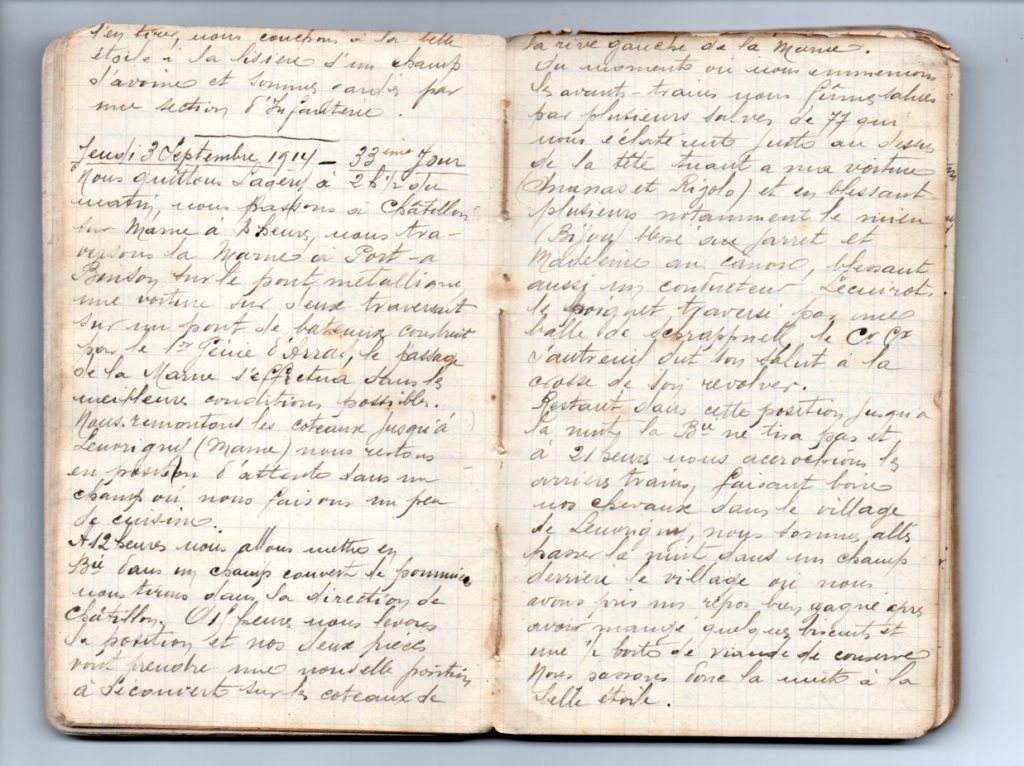 s'en tirer, nous couchons à la belle
étoile à la lisière d'un champ
d'avoine et sommes gardés par
une section d'Infanterie.
Jeudi 3 Septembre 1914 – 33ème Jour
Nous quittons Lagery à 2h½ du
matin, nous passons à Châtillon
sur Marne à heures, nous tra-
versons la Marne à Port-à
Binson sur le pont métallique
une voiture sur deux traversant
sur un pont de bateaux construit
par le 1er Génie d'Arras, le passage
de la Marne s'effectua dans les
meilleures conditions possibles.
Nous remontons les coteaux jusqu'à
Leuvrigny (Marne) nous restons
en position d'attente dans un
champ où nous faisons un peu
de cuisine.
A 12 heures nous allons mettre en
Bie dans un champ couvert de pommiers
nous tirons dans la direction de
Châtillon. A 1 heures nous levons
la position et nos deux pièces
vont prendre une nouvelle position
à découvert sur les coteaux de
la rive gauche de la Marne.
Au moment où nous emmenions
les avants-trains nous fûmes salués
par plusieurs salves de 77 qui
nous éclatèrent juste au dessus
de la tête tuant a ma voiture
(Ananas et Rigolo) et en blessant
plusieurs notamment le mien
(Bijou) blessé au jarret et
Madeleine au canon, blessant
aussi un conducteur Lecuirot
le poignet traversé par une
balle de schrappnell le Cr
Sautreuil dut son salut à la
crosse de son revolver.
Restant dans cette position jusqu'à
la nuit, la Bie ne tira pas et
à 21 heures nous accrochions les
arrières trains, faisant boire
nos chevaux dans le village
de Leuvrigny, nous sommes allés
passer la nuit dans un champ
derrière le village où nous
avons pris un repos bien gagné après
avoir mangé quelques biscuits et
une ½ boîte de viande de conserve
Nous passons donc la nuit à la
belle étoile.